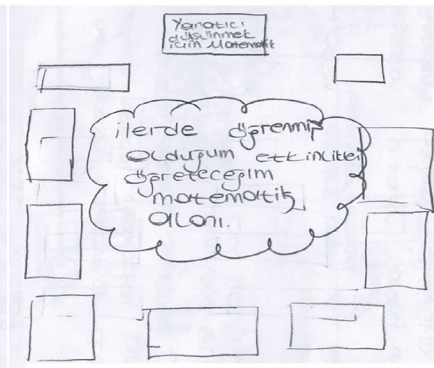 Yaratıcı
düşünmek
için Matematik
ilerde öğrenmiş
olduğum etkinlikleri
öğreteceğim
matematik
alanı.